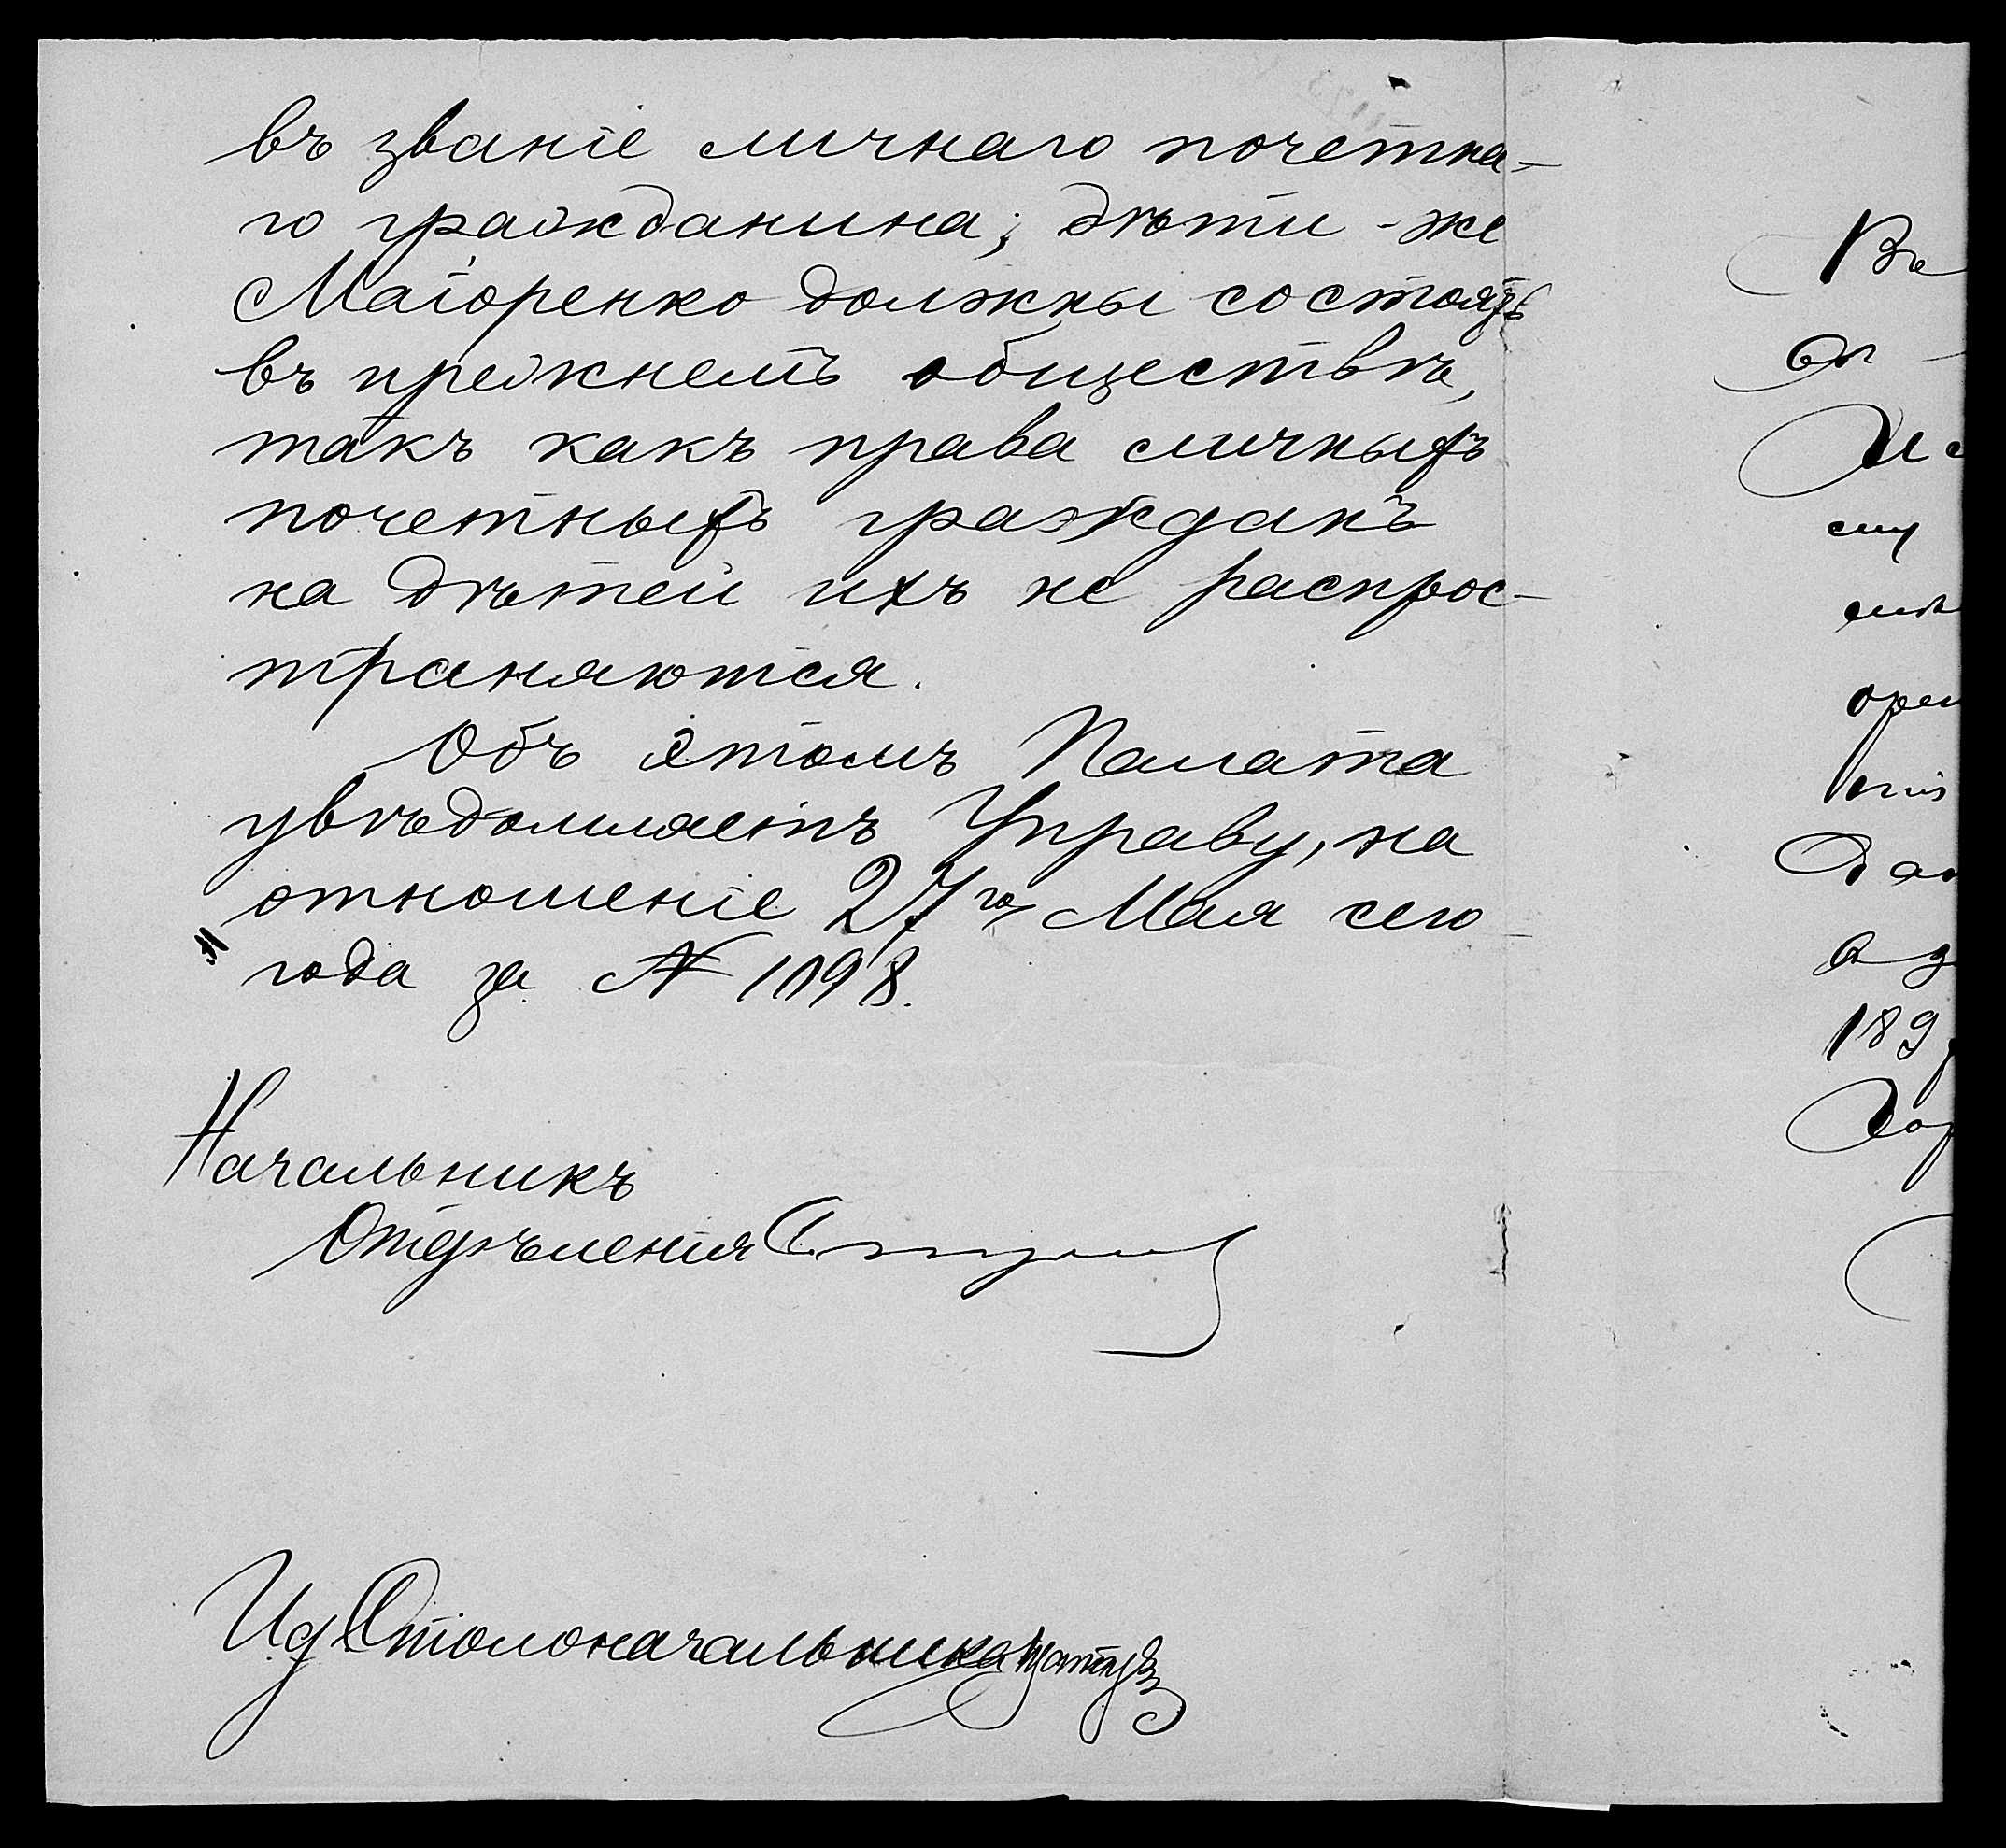 въ званіе личнаго почетна-
го гражданина; дѣти-же
Маіоренко должны состоять
въ прежнемъ обществѣ,
такъ какъ права личныхъ
почетныхъ гражданъ
на дѣтей ихъ не распрос-
траняются.
Объ этомъ Палата
увѣдомляетъ Управу, на
отношеніе 27го Мая сего
года за № 1098.
Начальникъ
Отдѣленія
Ид Столоначальника
189